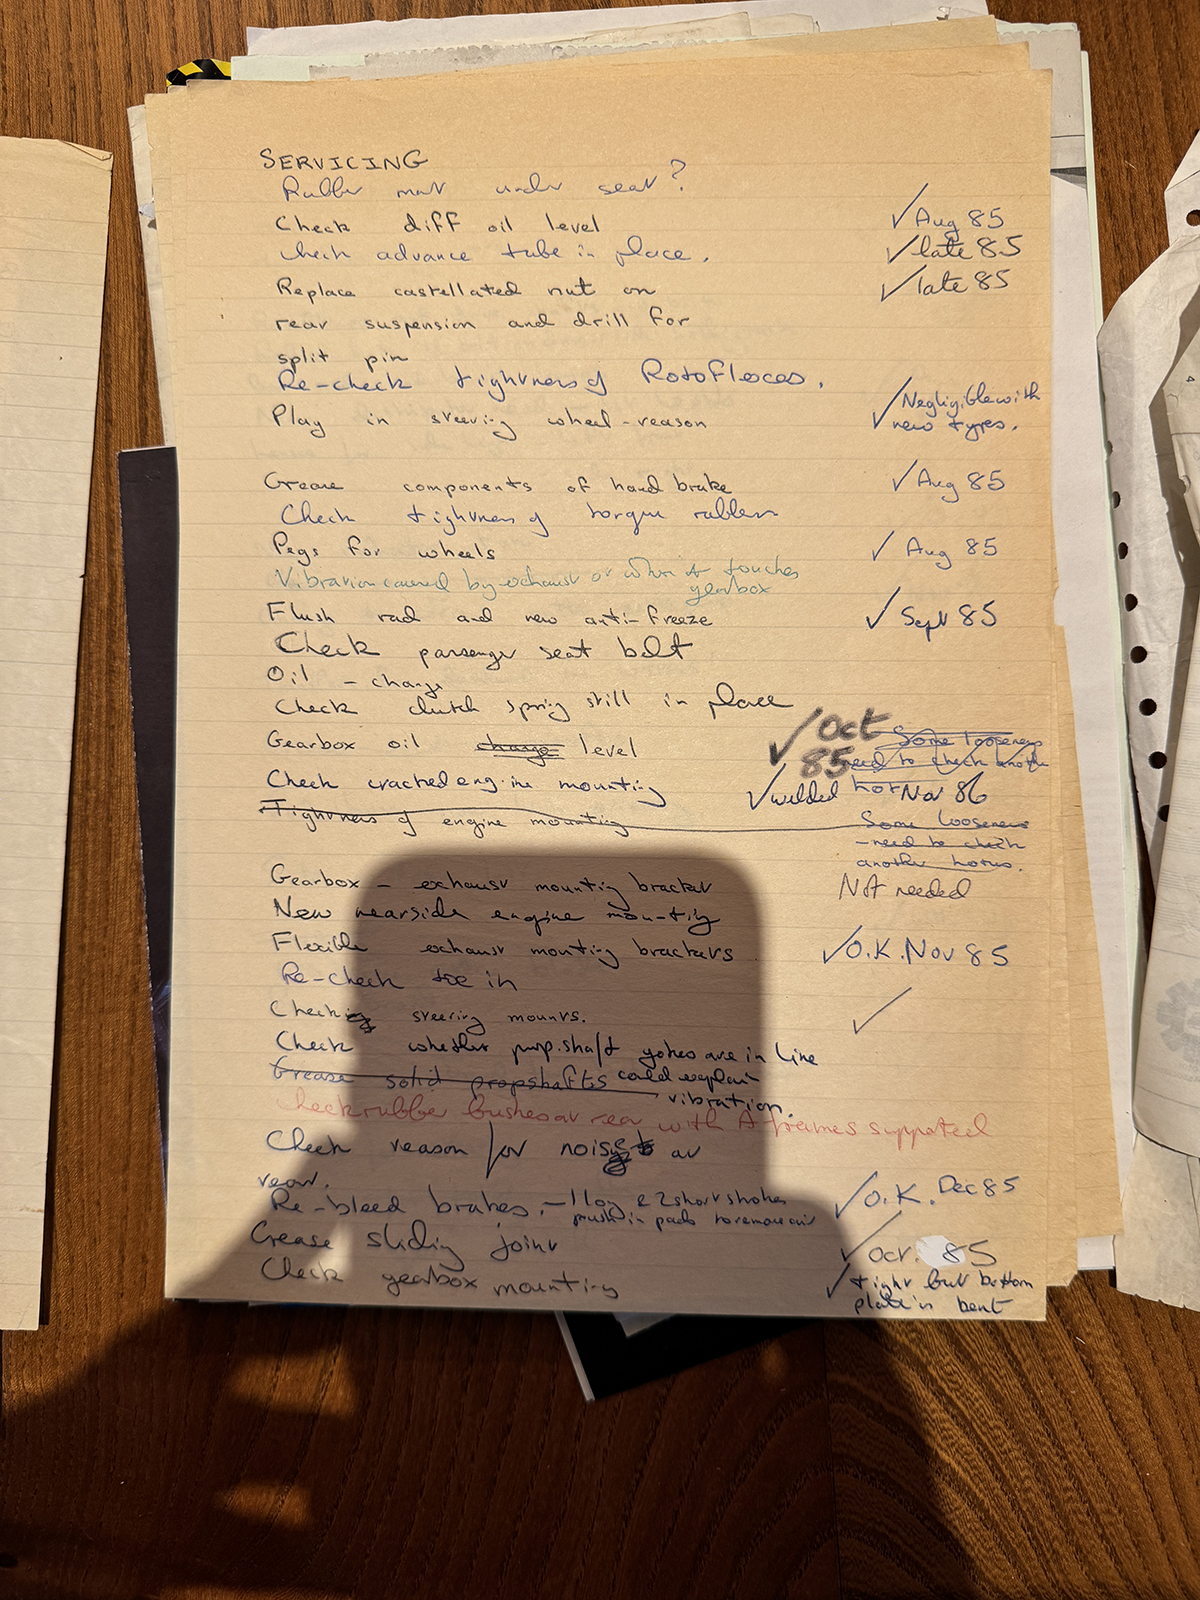 SERVICING
Rubber mat under seat?
Check diff oil level ✓ Aug 85
Check advance tube in place. ✓ late 85
Replace castellated nut on ✓ late 85
rear suspension and drill for
split pin
Re-check tightness of Rotoflexes.
Play in steering wheel - reason ✓ Negligible with
new tyres.
Grease components of hand brake ✓ Aug 85
Check tightness of torque rubbers
Pegs for wheels ✓ Aug 85
Vibration caused by exhaust or when it touches
gearbox
Flush rad and new anti-freeze ✓ Sept 85
Check passenger seat belt
Oil - change
Check clutch spring still in place
Gearbox oil change level ✓ Oct 85
Some looseness
need to check another
Check cracked engine mounting ✓ welded Nov 86
Tightness of engine mounting Some looseness
- need to check
another
Gearbox - exhaust mounting bracket Not needed
New nearside engine mounting
Flexible exhaust mounting brackets ✓ O.K. Nov 85
Re-check toe in
Check steering mounts. ✓
Check whether prop.shaft yokes are in line
Grease solid propshafts could explain
vibration.
Check rubber bushes at rear with A frames supported
Check reason for noise at
rear.
Re-bleed brakes. - 1 long & 2 short strokes ✓ O.K. Dec 85
push in pads to remove air
Grease sliding joint ✓ Oct. 85
Check gearbox mounting ✓ tight but bottom
plate is bent